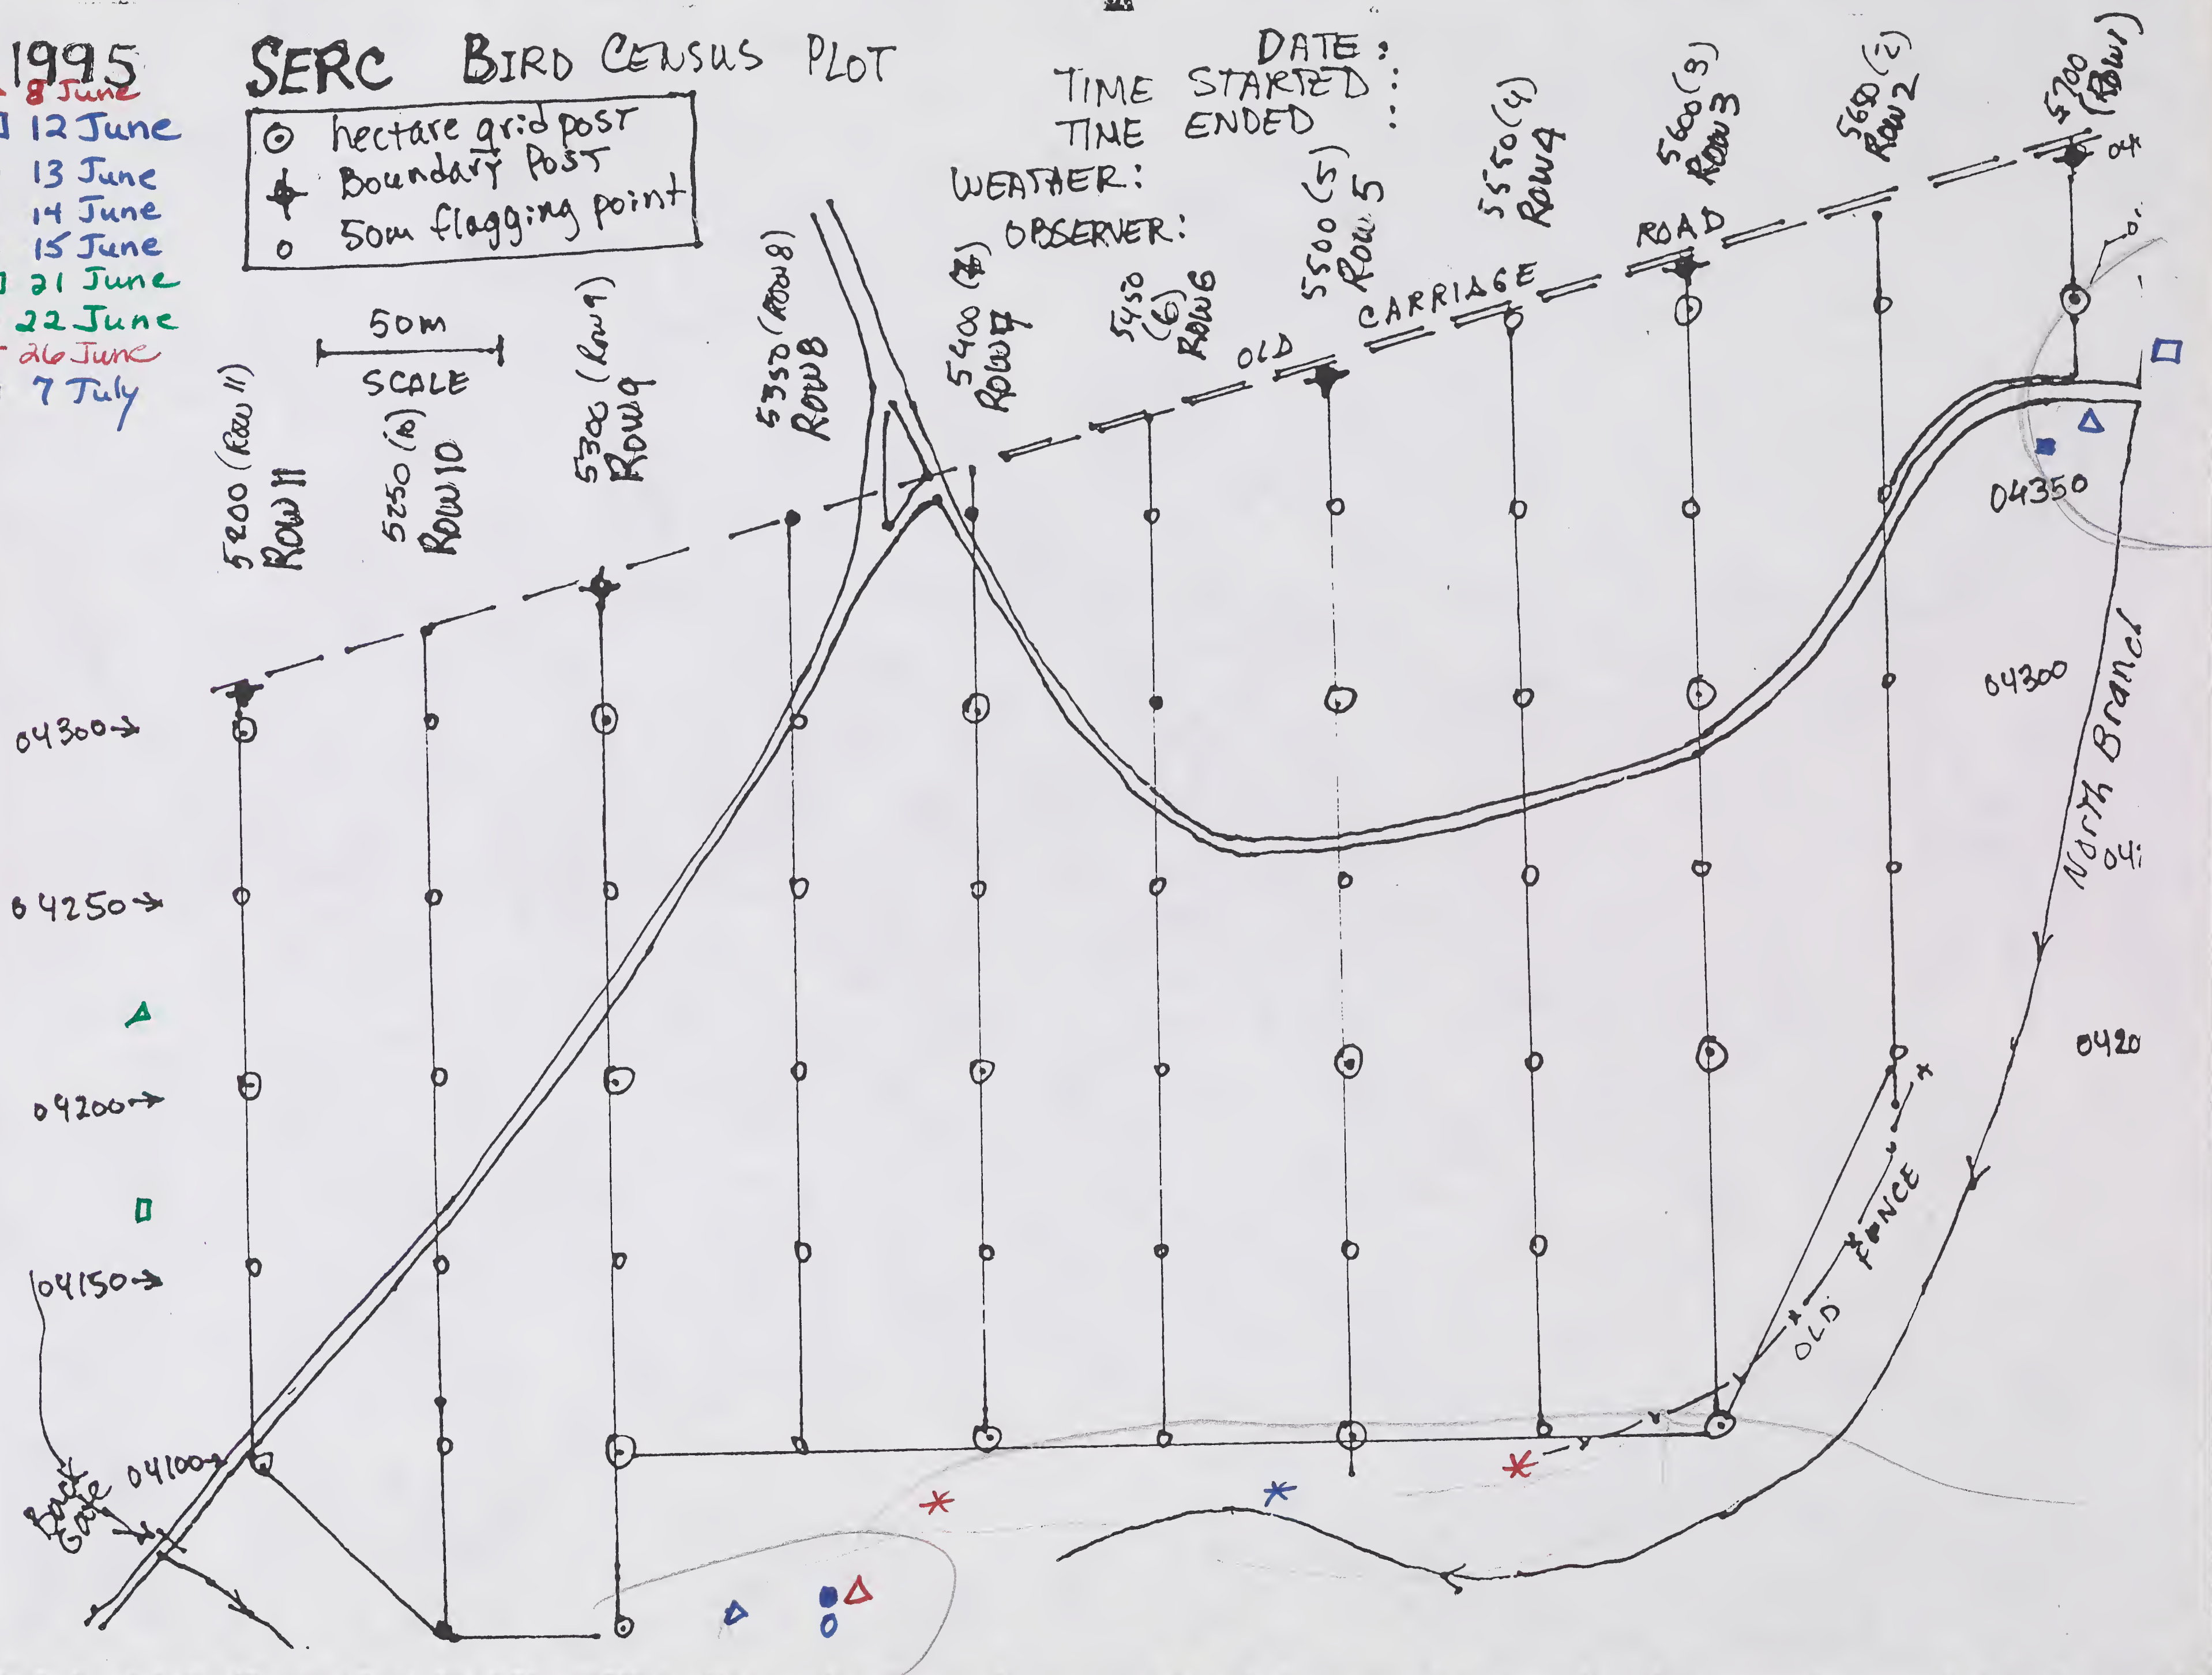 1995
8 June
12 June
13 June
14 June
15 June
21 June
22 June
26 June
7 July
SERC BIRD CENSUS PLOT
hectare grid post
Boundary Post
50m flagging point
50m
SCALE
DATE:
TIME STARTED:
TIME ENDED:
WEATHER:
OBSERVER:
5200 (Row 11)
Row 11
5250 (10)
Row 10
5300 (Row 9)
Row 9
5350 (Row 8)
Row 8
5400
Row 7
5450
(6)
Row 6
5500 (5)
Row 5
5550 (4)
Row 4
5600 (3)
Row 3
5650 (2)
Row 2
5700
(Row 1)
OLD CARRIAGE ROAD
04350
04300
0420
North Branch
04300→
04250→
04200→
04150→
04100→
Back
Gate
OLD FENCE